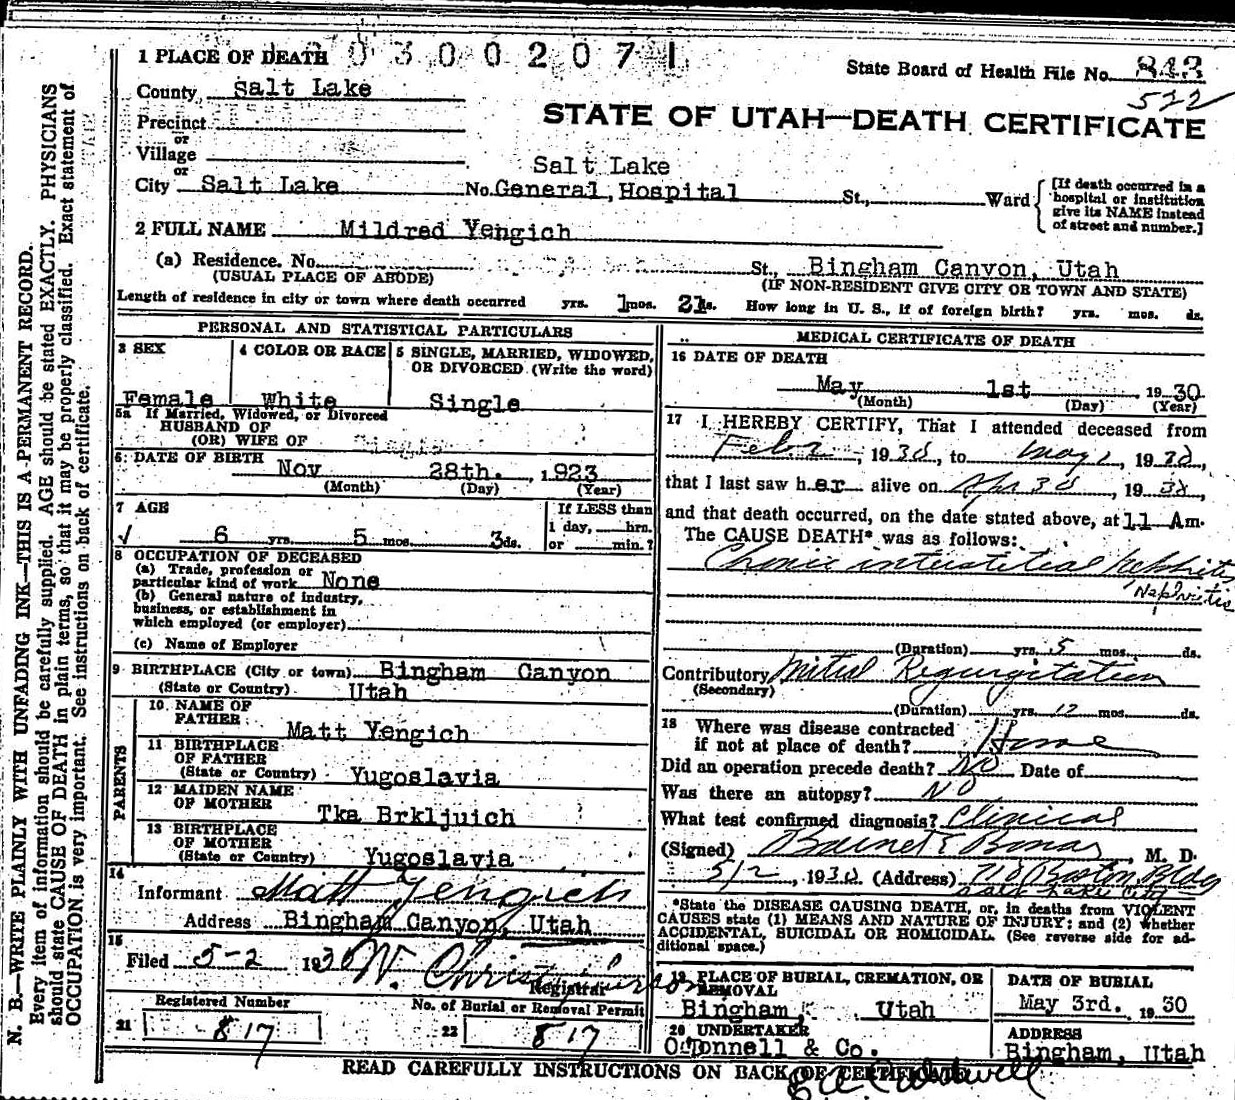 1 PLACE OF DEATH 0 3 0 0 2 0 7 1
State Board of Health File No. 843
522
County Salt Lake
STATE OF UTAH—DEATH CERTIFICATE
Precinct
or
Village
or
Salt Lake
City Salt Lake No. General Hospital St., Ward
[If death occurred in a
hospital or institution
give its NAME instead
of street and number.]
2 FULL NAME Mildred Yengich
(a) Residence. No. St., Bingham Canyon, Utah
(USUAL PLACE OF ABODE) (IF NON-RESIDENT GIVE CITY OR TOWN AND STATE)
Length of residence in city or town where death occurred yrs. 1 mos. 21 ds. How long in U. S., if of foreign birth? yrs. mos. ds.
PERSONAL AND STATISTICAL PARTICULARS
3 SEX 4 COLOR OR RACE 5 SINGLE, MARRIED, WIDOWED,
OR DIVORCED (Write the word)
Female White Single
5a If Married, Widowed, or Divorced
HUSBAND OF
(OR) WIFE OF Single
6 DATE OF BIRTH
Nov 28th. , 1923
(Month) (Day) (Year)
7 AGE If LESS than
1 day, hrs.
6 yrs. 5 mos. 3 ds. or min.?
8 OCCUPATION OF DECEASED
(a) Trade, profession or
particular kind of work None
(b) General nature of industry,
business, or establishment in
which employed (or employer)
(c) Name of Employer
9 BIRTHPLACE (City or town) Bingham Canyon
(State or Country) Utah
PARENTS
10 NAME OF
FATHER Matt Yengich
11 BIRTHPLACE
OF FATHER
(State or Country) Yugoslavia
12 MAIDEN NAME
OF MOTHER Tka Brkljuich
13 BIRTHPLACE
OF MOTHER
(State or Country) Yugoslavia
14
Informant Matt Yengich
Address Bingham Canyon, Utah
15
Filed 5-2 1930 W. Christopherson
Registrar
Registered Number No. of Burial or Removal Permit
21 817 22 817
MEDICAL CERTIFICATE OF DEATH
16 DATE OF DEATH
May 1st , 1930
(Month) (Day) (Year)
17 I HEREBY CERTIFY, That I attended deceased from
Feb 2, 1930, to May 1, 1930,
that I last saw her alive on Apr 30, 1930,
and that death occurred, on the date stated above, at 11 Am.
The CAUSE DEATH* was as follows:
Chronic interstitial Nephritis
Nephritis
(Duration) yrs. 5 mos. ds.
Contributory Mitral Regurgitation
(Secondary)
(Duration) yrs. 12 mos. ds.
18 Where was disease contracted
if not at place of death? Home
Did an operation precede death? No Date of
Was there an autopsy? No
What test confirmed diagnosis? Clinical
(Signed) Barnet E Bonar, M. D.
5/2, 1930 (Address) 718 Boston Bldg
Salt Lake City
*State the DISEASE CAUSING DEATH, or, in deaths from VIOLENT
CAUSES state (1) MEANS AND NATURE OF INJURY; and (2) whether
ACCIDENTAL, SUICIDAL OR HOMICIDAL. (See reverse side for ad-
ditional space.)
19 PLACE OF BURIAL, CREMATION, OR
REMOVAL
Bingham, Utah
DATE OF BURIAL
May 3rd. 1930
20 UNDERTAKER
O'Donnell & Co.
ADDRESS
Bingham, Utah
READ CAREFULLY INSTRUCTIONS ON BACK OF CERTIFICATE
N. B.—WRITE PLAINLY WITH UNFADING INK—THIS IS A PERMANENT RECORD.
Every item of information should be carefully supplied. AGE should be stated EXACTLY. PHYSICIANS
should state CAUSE OF DEATH in plain terms, so that it may be properly classified. Exact statement of
OCCUPATION is very important. See instructions on back of certificate.